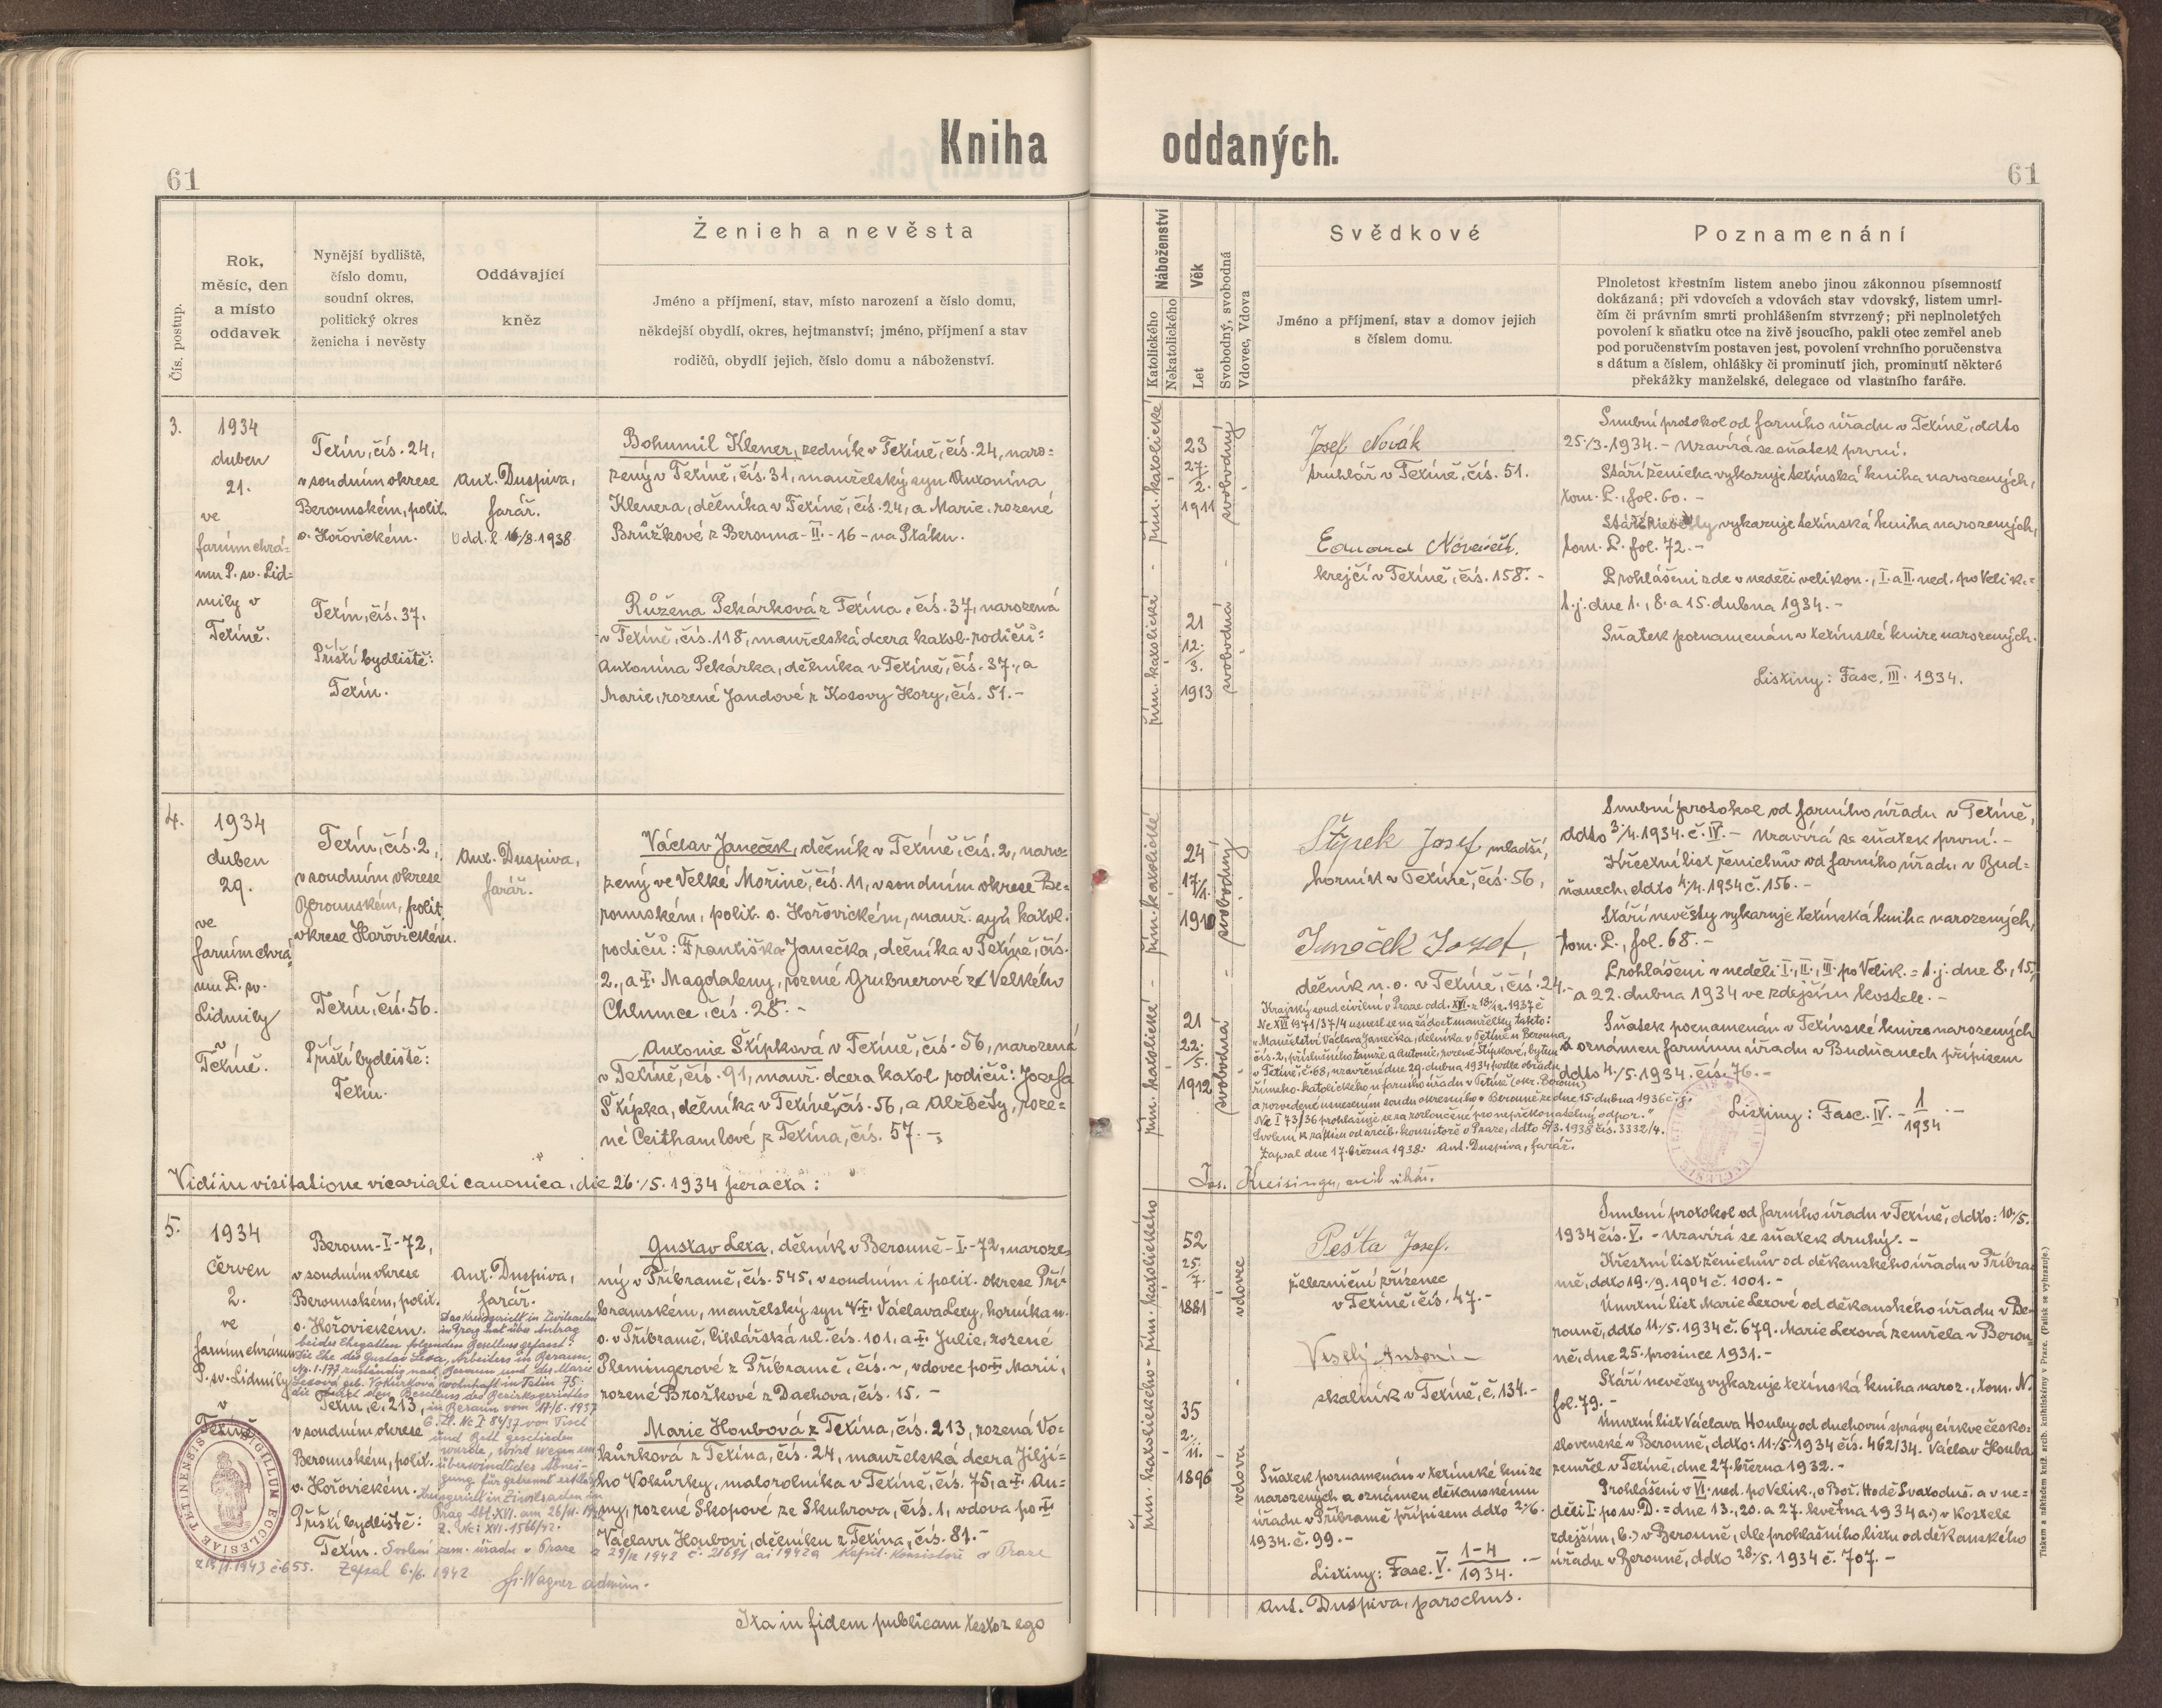 Kniha oddaných.
61
61
Čís. postup.
Rok,
měsíc, den
a místo
oddavek
Nynější bydliště,
číslo domu,
soudní okres,
politický okres
ženicha i nevěsty
Oddávající
kněz
Ženich a nevěsta
Jméno a příjmení, stav, místo narození a číslo domu,
někdejší obydlí, okres, hejtmanství; jméno, příjmení a stav
rodičů, obydlí jejich, číslo domu a náboženství.
Náboženství
Katolického
Nekatolického
Věk
Let
Svobodný, svobodná
Vdovec, Vdova
Svědkové
Jméno a příjmení, stav a domov jejich
s číslem domu.
Poznamenání
Plnoletost křestním listem anebo jinou zákonnou písemností
dokázaná; při vdovcích a vdovách stav vdovský, listem umrl-
čím či právním smrti prohlášením stvrzený; při neplnoletých
povolení k sňatku otce na živě jsoucího, pakli otec zemřel aneb
pod poručenstvím postaven jest, povolení vrchního poručenstva
s dátum a číslem, ohlášky či prominutí jich, prominutí některé
překážky manželské, delegace od vlastního faráře.
3.
1934
duben
21.
ve
farním chrá-
mu P. sv. Lid=
mily v
Tetíně.
Tetín, čís. 24,
v soudním okrese
Berounském, polit.
o. Hořovickém.
Tetín, čís. 37.
Příští bydliště:
Tetín.
Ant. Duspiva,
farář.
Odd. l. 16/8. 1938
Bohumil Klener, zedník v Tetíně, čís. 24, naro=
zený v Tetíně, čís. 31, manželský syn Antonína
Klenera, dělníka v Tetíně, čís. 24, a Marie, rozené
Brůžkové z Berouna-II.-16-na Ptáku.
Růžena Pekárková z Tetína, čís. 37, narozená
v Tetíně, čís. 118, manželská dcera katol. rodičů:
Antonína Pekárka, dělníka v Tetíně, čís. 37., a
Marie, rozené Jandové z Kosovy Hory, čís. 51.-
řím. katolické
23
27.
2.
1911
svobodný
řím. katolické
21
12.
3.
1913
svobodná
Josef Novák
truhlář v Tetíně, čís. 51.
Eduard Nováček.
krejčí v Tetíně, čís. 158.-
Snubní protokol od farního úřadu v Tetíně, ddto
25./3. 1934.- Uzavírá se sňatek první.
Stáří ženicha vykazuje tetínská kniha narozených,
tom. L., fol. 60.-
Stáří nevěsty vykazuje tetínská kniha narozených,
tom. L. fol. 72.-
Prohlášeni zde v neděli velikon., I. a II. ned. po Velik.=
t. j. dne 1., 8. a 15. dubna 1934.-
Sňatek poznamenán v tetínské knize narozených.
Listiny: Fasc. III. 1934.
4.
1934
duben
29.
ve
farním chrá
mu P. sv.
Lidmily
v
Tetíně.
Tetín, čís. 2,
v soudním okrese
Berounském, polit.
okrese Hořovickém.
Tetín, čís. 56.
Příští bydliště:
Tetín.
Ant. Duspiva,
farář.
Václav Janeček, dělník v Tetíně, čís. 2, naro=
zený ve Velké Mořině, čís. 11, v soudním okrese Be=
rounském, polit. o. Hořovickém, manž. syn katol.
rodičů: Františka Janečka, dělníka v Tetíně, čís.
2., a †. Magdaleny, rozené Grubnerové z Velkého
Chlumce, čís. 28.-
Antonie Štípková v Tetíně, čís. 56, narozená
v Tetíně, čís. 91, manž. dcera katol. rodičů: Josefa
Štípka, dělníka v Tetíně, čís. 56, a Alžběty, roze=
né Ceithamlové z Tetína, čís. 57.-
řím. katolické
24
17./1.
1910
svobodný
řím. katolické
21
22.
5.
1912
svobodná
Štípek Josef mladší,
horník v Tetíně, čís. 56,
Janeček Josef,
dělník n. o. v Tetíně, čís. 24.-
Krajský soud civilní v Praze odd. XVI. z 18/12. 1937 č
Nc XVI 1971/37/4 usnesl se na žádost manželky takto:
"Manželství Václava Janečka, dělníka v Tetíně u Berouna,
čís. 2, příslušného tamže a Antonie, rozené Štípkové, bytem
v Tetíně, č. 68, uzavřené dne 29. dubna 1934 podle obřadu
římsko-katolického u farního úřadu v Tetíně (okr. Beroun)
a rozvedené usnesením soudu okresního v Berouně ze dne 15. dubna 1936 č. j.
Nc I 73/36 prohlašuje se za rozloučené pro nepřekonatelný odpor."
Svolení k zápisu od arcib. konsistoře v Praze, ddto 5/3. 1938 čís. 3332/4.
Zapsal dne 17. března 1938: Ant. Duspiva, farář.
Snubní protokol od farního úřadu v Tetíně,
ddto 3/4. 1934. č. IV.- Uzavírá se sňatek první.-
Křestní list ženichův od farního úřadu v Bud=
ňanech, ddto 4./4. 1934 č. 156.-
Stáří nevěsty vykazuje tetínská kniha narozených,
tom. L., fol. 68.-
Prohlášeni v neděli I., II., III. po Velik.= t. j. dne 8., 15.,
a 22. dubna 1934 ve zdejším kostele.-
Sňatek poznamenán v Tetínské knize narozených
a oznámen farnímu úřadu v Budňanech přípisem
ddto 4./5. 1934. čís. 76.-
Listiny: Fasc. IV. - 1/1934.-
Vidi in visitatione vicariali canonica, die 26./5. 1934 peracta:
Jos. Kreisinger,
5.
1934
červen
2.
ve
farním chrámu
P. sv. Lidmily
v
Tetíně
Beroun-I-72,
v soudním okrese
Berounském, polit.
o. Hořovickém.
Tetín, č. 213,
v soudním okrese
Berounském, polit.
o. Hořovickém.
Příští bydliště:
Tetín.
Ant. Duspiva,
farář.
Das Kreisgericht in Zivilsachen
in Prag hat über Antrag
beider Ehegatten folgenden Beschluss gefasst:
Die Ehe des Gustav Lexa, Arbeiters in Beraun
Nr. I.-177 zuständig nach Beraun und der Marie
Lexová geb. Vokurková wohnhaft in Tetin 75:
die laut dem Beschluss des Bezirksgerichtes
in Beraun vom 17/6. 1937
G. Zl. Nc I 84/37 von Tisch
und Bett geschieden
wurde, wird wegen un
überwindlicher Abnei-
gung für getrennt erklärt
Kreisgericht in Zivilsachen in
Prag Abt. XVI. am 26/11. 1942
Z. Nc: XVI. 1566/42.
Svolení zem. úřadu v Praze
z 29/12 1942 č. 21691 ai 1942 a Kapit. Konsistoře v Praze
z 13/1. 1943 č. 655. Zapsal 6./6. 1942 Fr. Wagner admin.
Gustav Lexa, dělník v Berouně-I.-72, naroze=
ný v Příbramě, čís. 545, v soudním i polit. okrese Pří=
bramském, manželský syn †. Václava Lexy, horníka n.
o. v Příbramě, Cihlářská ul. čís. 101, a †. Julie, rozené
Plemingerové z Příbramě, čís. ~, vdovec po †. Marii,
rozené Brožkové z Dachova, čís. 15.-
Marie Houbová z Tetína, čís. 213, rozená Vo=
kůrková z Tetína, čís. 24, manželská dcera Jiljí=
ho Vokůrky, malorolníka v Tetíně, čís. 75, a †. An=
ny, rozené Skopové ze Skuhrova, čís. 1, vdova po †.
Václavu Houbovi, dělníku z Tetína, čís. 81.-
řím. katolického
52
25.
7.
1881
vdovec
řím. katolického
35
2.
11.
1896
vdova
Pešta Josef.
železniční zřízenec
v Tetíně, čís. 47.-
Veselý Antoní-
skalník v Tetíně, č. 134.-
Sňatek poznamenán v tetínské knize
narozených a oznámen děkanskému
úřadu v Příbramě přípisem ddto 2/6.
1934. č. 99.-
Listiny: Fasc. V. 1-4/1934.-
Snubní protokol od farního úřadu v Tetíně, ddto: 10/5.
1934 čís. V.- Uzavírá se sňatek druhý.-
Křestní list ženichův od děkanského úřadu v Příbra=
mě, ddto 19./9. 1904 č. 1001.-
Úmrtní list Marie Lexové od děkanského úřadu v Be=
rouně, ddto 11./5. 1934 č. 679. Marie Lexová zemřela v Berou
ně, dne 25. prosince 1931.-
Stáří nevěsty vykazuje tetínská kniha naroz., tom. N.
fol. 79.-
Úmrtní list Václava Houby od duchovní správy církve česko=
slovenské v Berouně, ddto: 11./5. 1934 čís. 462/34. Václav Houba
zemřel v Tetíně, dne 27. března 1932.-
Prohlášeni v VI. ned. po Velik., o Bož. Hodě Svatoduš. a v ne=
děli I. po sv. D. = dne 13., 20. a 27. května 1934 a.) v kostele
zdejším, b.) v Berouně, dle prohlašního listu od děkanského
úřadu v Berouně, ddto 28./5. 1934 č. 707.-
SIGILLUM ECCLESIAE TETINENSIS
Ita in fidem publicam testor ego
Ant. Duspiva, parochus.
Tiskem a nákladem kníž. arcib. knihtiskárny v Praze. (Patisk se vyhrazuje.)